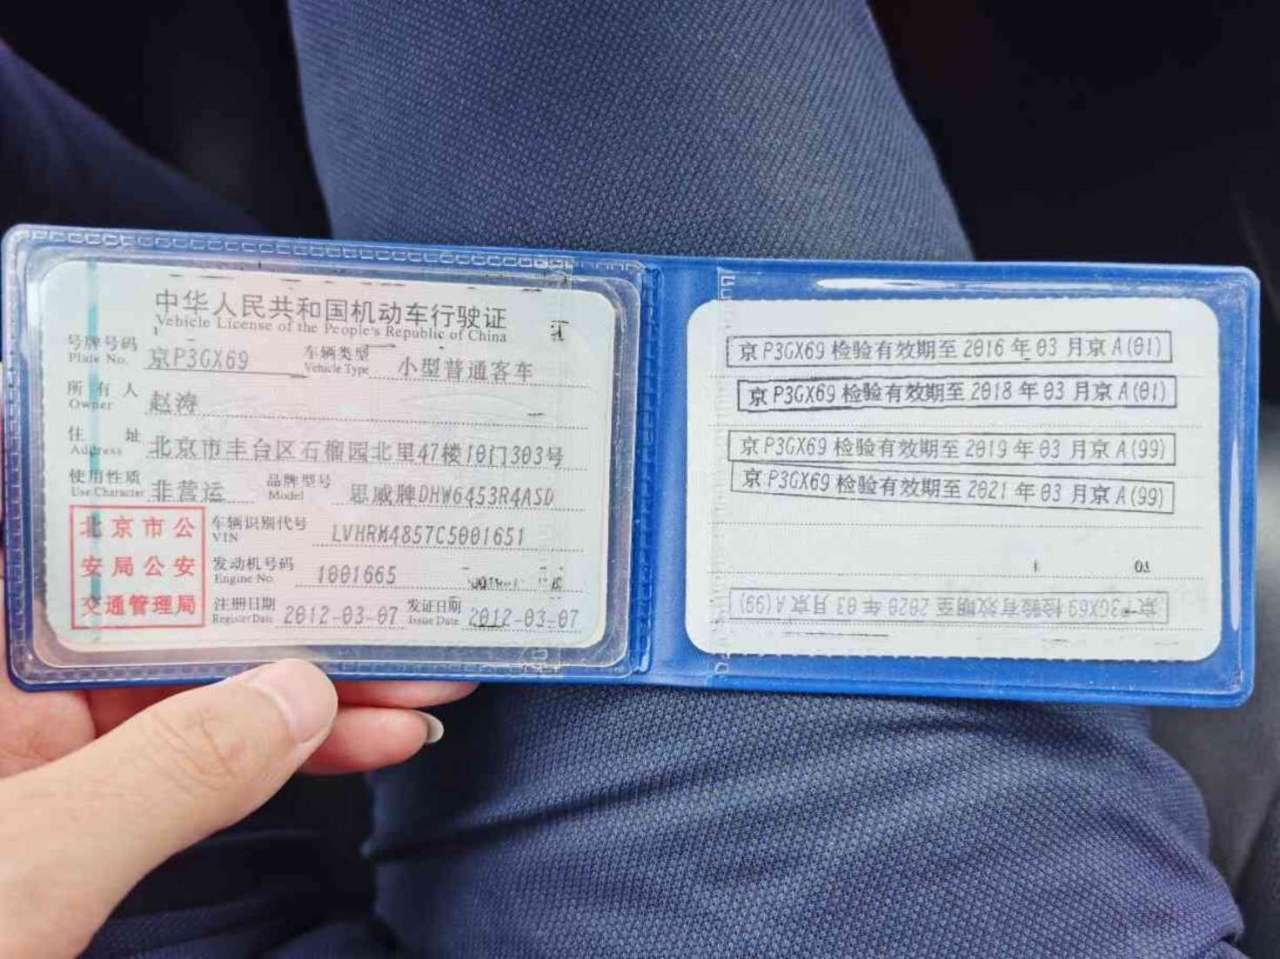 中华人民共和国机动车行驶证
Vehicle License of the People's Republic of China
号牌号码 京P3GX69 车辆类型 小型普通客车
Plate No. Vehicle Type
所有人 赵涛
Owner
住址 北京市丰台区石榴园北里47楼10门303号
Address
使用性质 非营运 品牌型号 思威牌DHW6453R4ASD
Use Character Model
北京市公
安局公安
交通管理局
车辆识别代号 LVHRM4857C5001651
VIN
发动机号码 1001665
Engine No.
注册日期 2012-03-07 发证日期 2012-03-07
Register Date Issue Date
京P3GX69 检验有效期至 2016 年 03 月京 A(01)
京P3GX69 检验有效期至 2018 年 03 月京 A(01)
京P3GX69 检验有效期至 2019 年 03 月京 A(99)
京P3GX69 检验有效期至 2021 年 03 月京 A(99)
京P3GX69 检验有效期至 2020 年 03 月京 A(99)